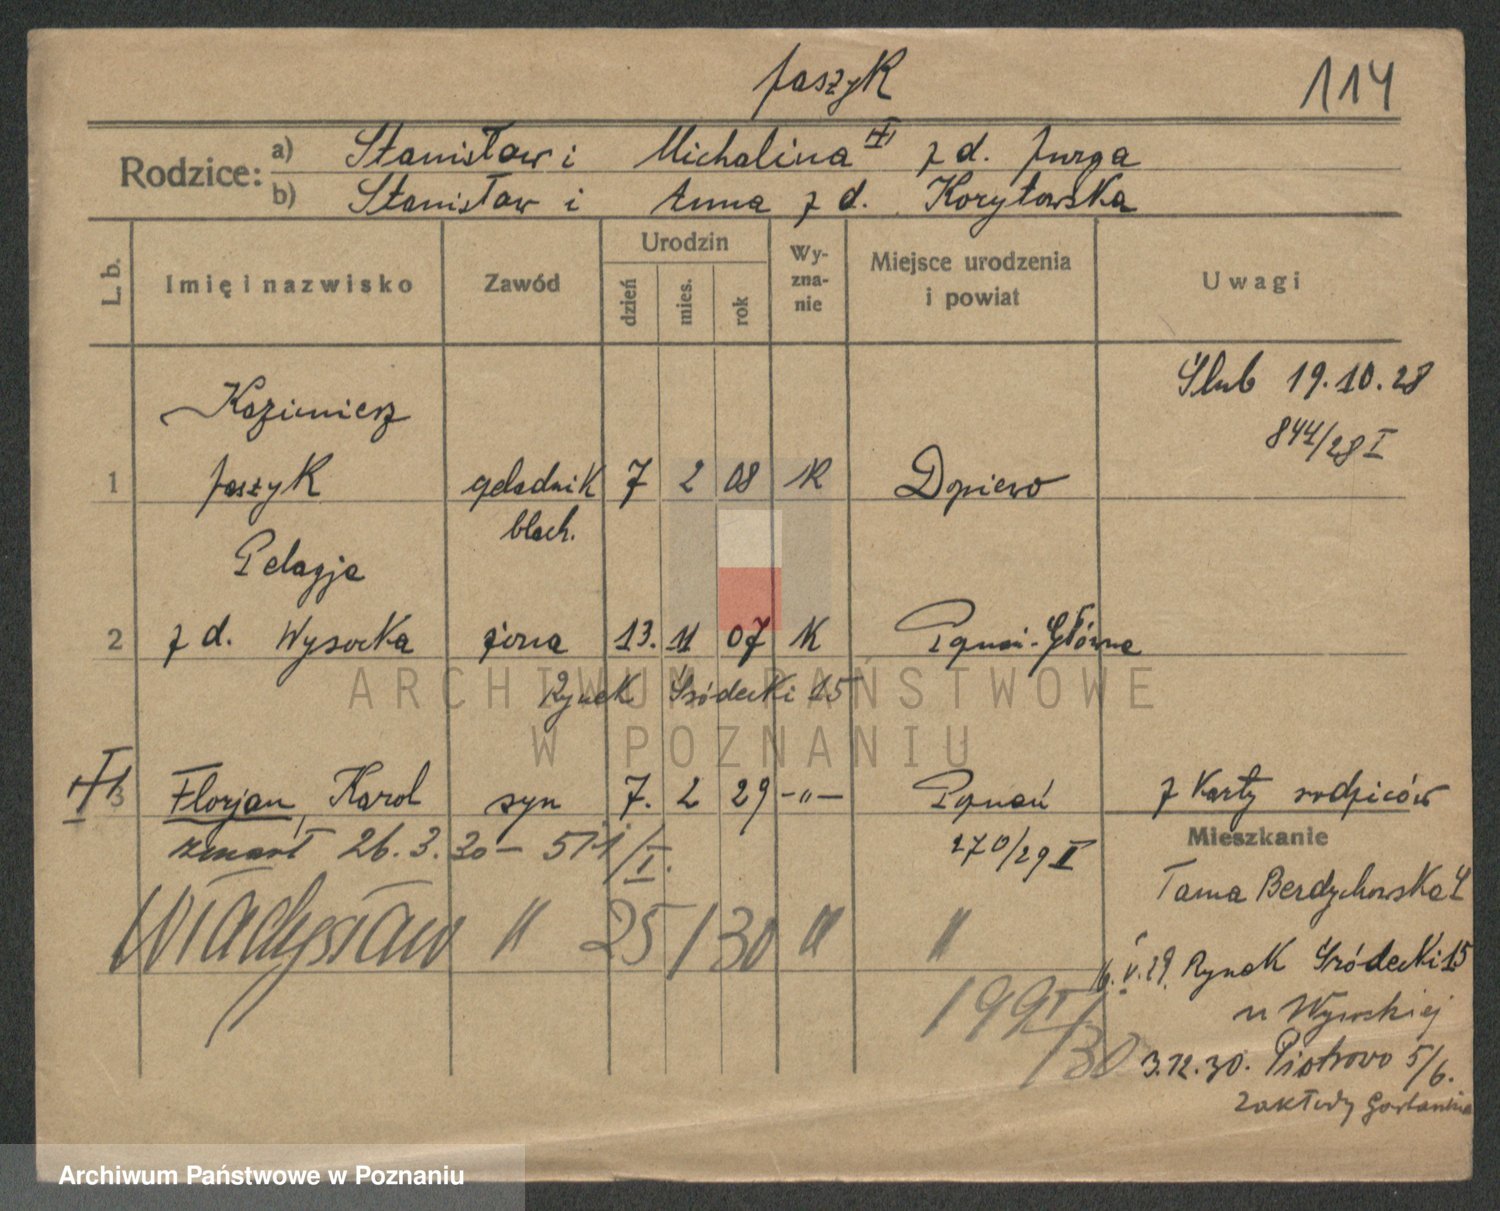 Jaszyk
114
Rodzice:
a) Stanisław i Michalina z d. Jurga
b) Stanisław i Anna z d. Korytowska
L. b.
Imię i nazwisko
Zawód
Urodzin
dzień
mies.
rok
Wy-
zna-
nie
Miejsce urodzenia
i powiat
Uwagi
Kazimierz
Ślub 19.10.28
844/28 I
1 Jaszyk geladnik 7 2 08 rk Dopiewo
blach.
Pelagja
2 z d. Wysocka żona 13. 11 07 rk Poznań-Główna
Rynek Śródecki 15
3 Florjan, Karol syn 7. 2 29 -"- Poznań z karty rodziców
zmarł 26.3.30 - 571/I. 270/29 II
Mieszkanie
Tama Berdychowska 4
Władysław " 25/30 " "
V.29. Rynek Śródecki 15
1995/30
u Wysockiej
3.12.30. Piotrowo 5/6.
Zakłady
ARCHIWUM PAŃSTWOWE
W POZNANIU
Archiwum Państwowe w Poznaniu